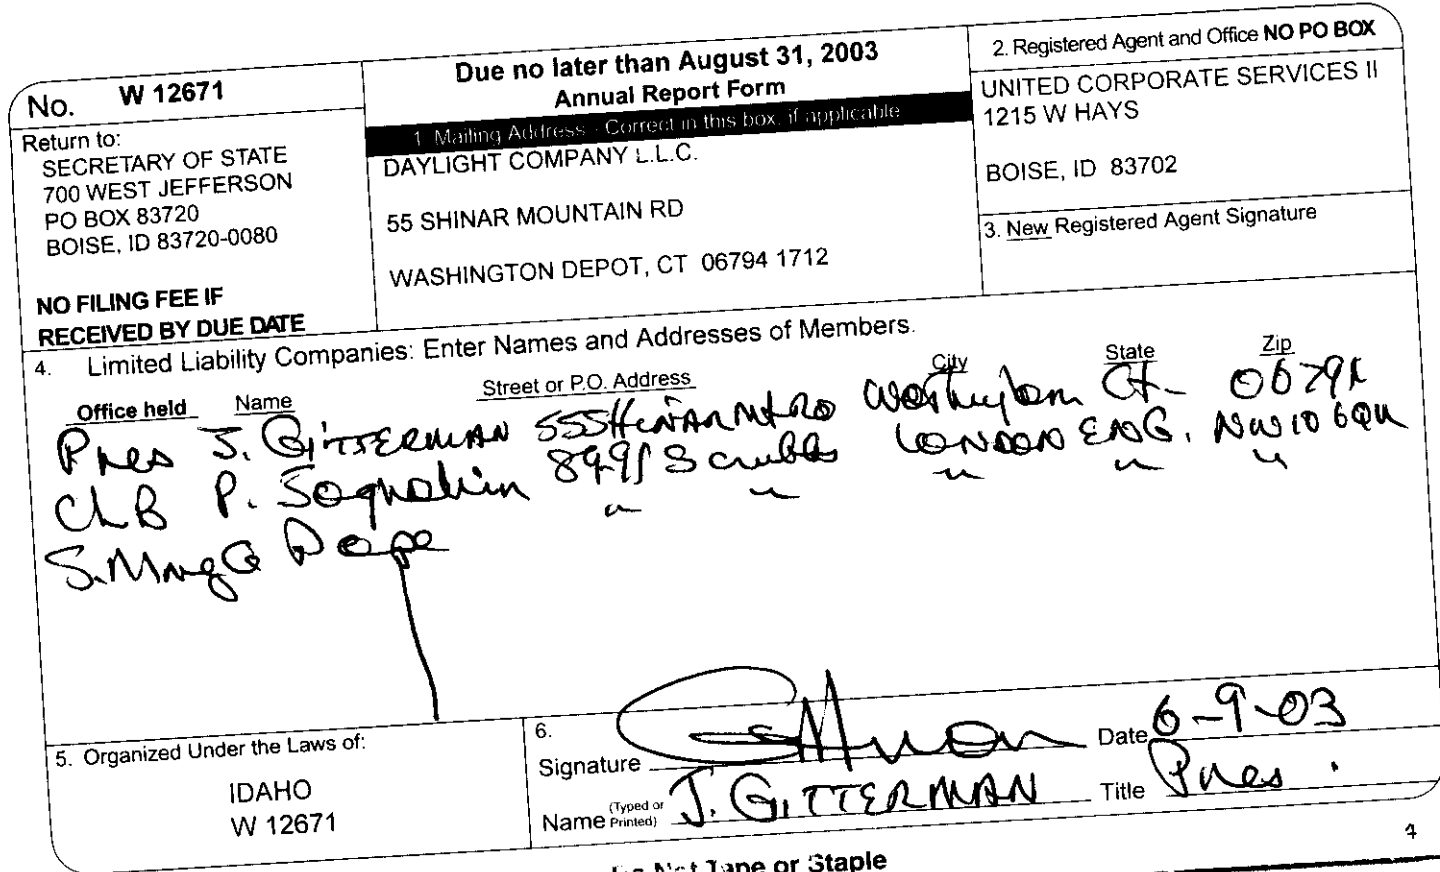 No. W 12671
Return to:
SECRETARY OF STATE
700 WEST JEFFERSON
PO BOX 83720
BOISE, ID 83720-0080
NO FILING FEE IF
RECEIVED BY DUE DATE
Due no later than August 31, 2003
Annual Report Form
1. Mailing Address - Correct in this box, if applicable
DAYLIGHT COMPANY L.L.C.
55 SHINAR MOUNTAIN RD
WASHINGTON DEPOT, CT 06794 1712
2. Registered Agent and Office NO PO BOX
UNITED CORPORATE SERVICES II
1215 W HAYS
BOISE, ID 83702
3. New Registered Agent Signature
4. Limited Liability Companies: Enter Names and Addresses of Members.
Office held Name Street or P.O. Address City State Zip
Pres J. GITTERMAN 55 SHINAR Mt RD Washington Ct.
P. LONDON ENG. NW10 6QU
5. Organized Under the Laws of:
IDAHO
W 12671
6.
Signature Date 6-9-03
Name (Typed or Printed) J. GITTERMAN Title Pres.
Do Not Tape or Staple